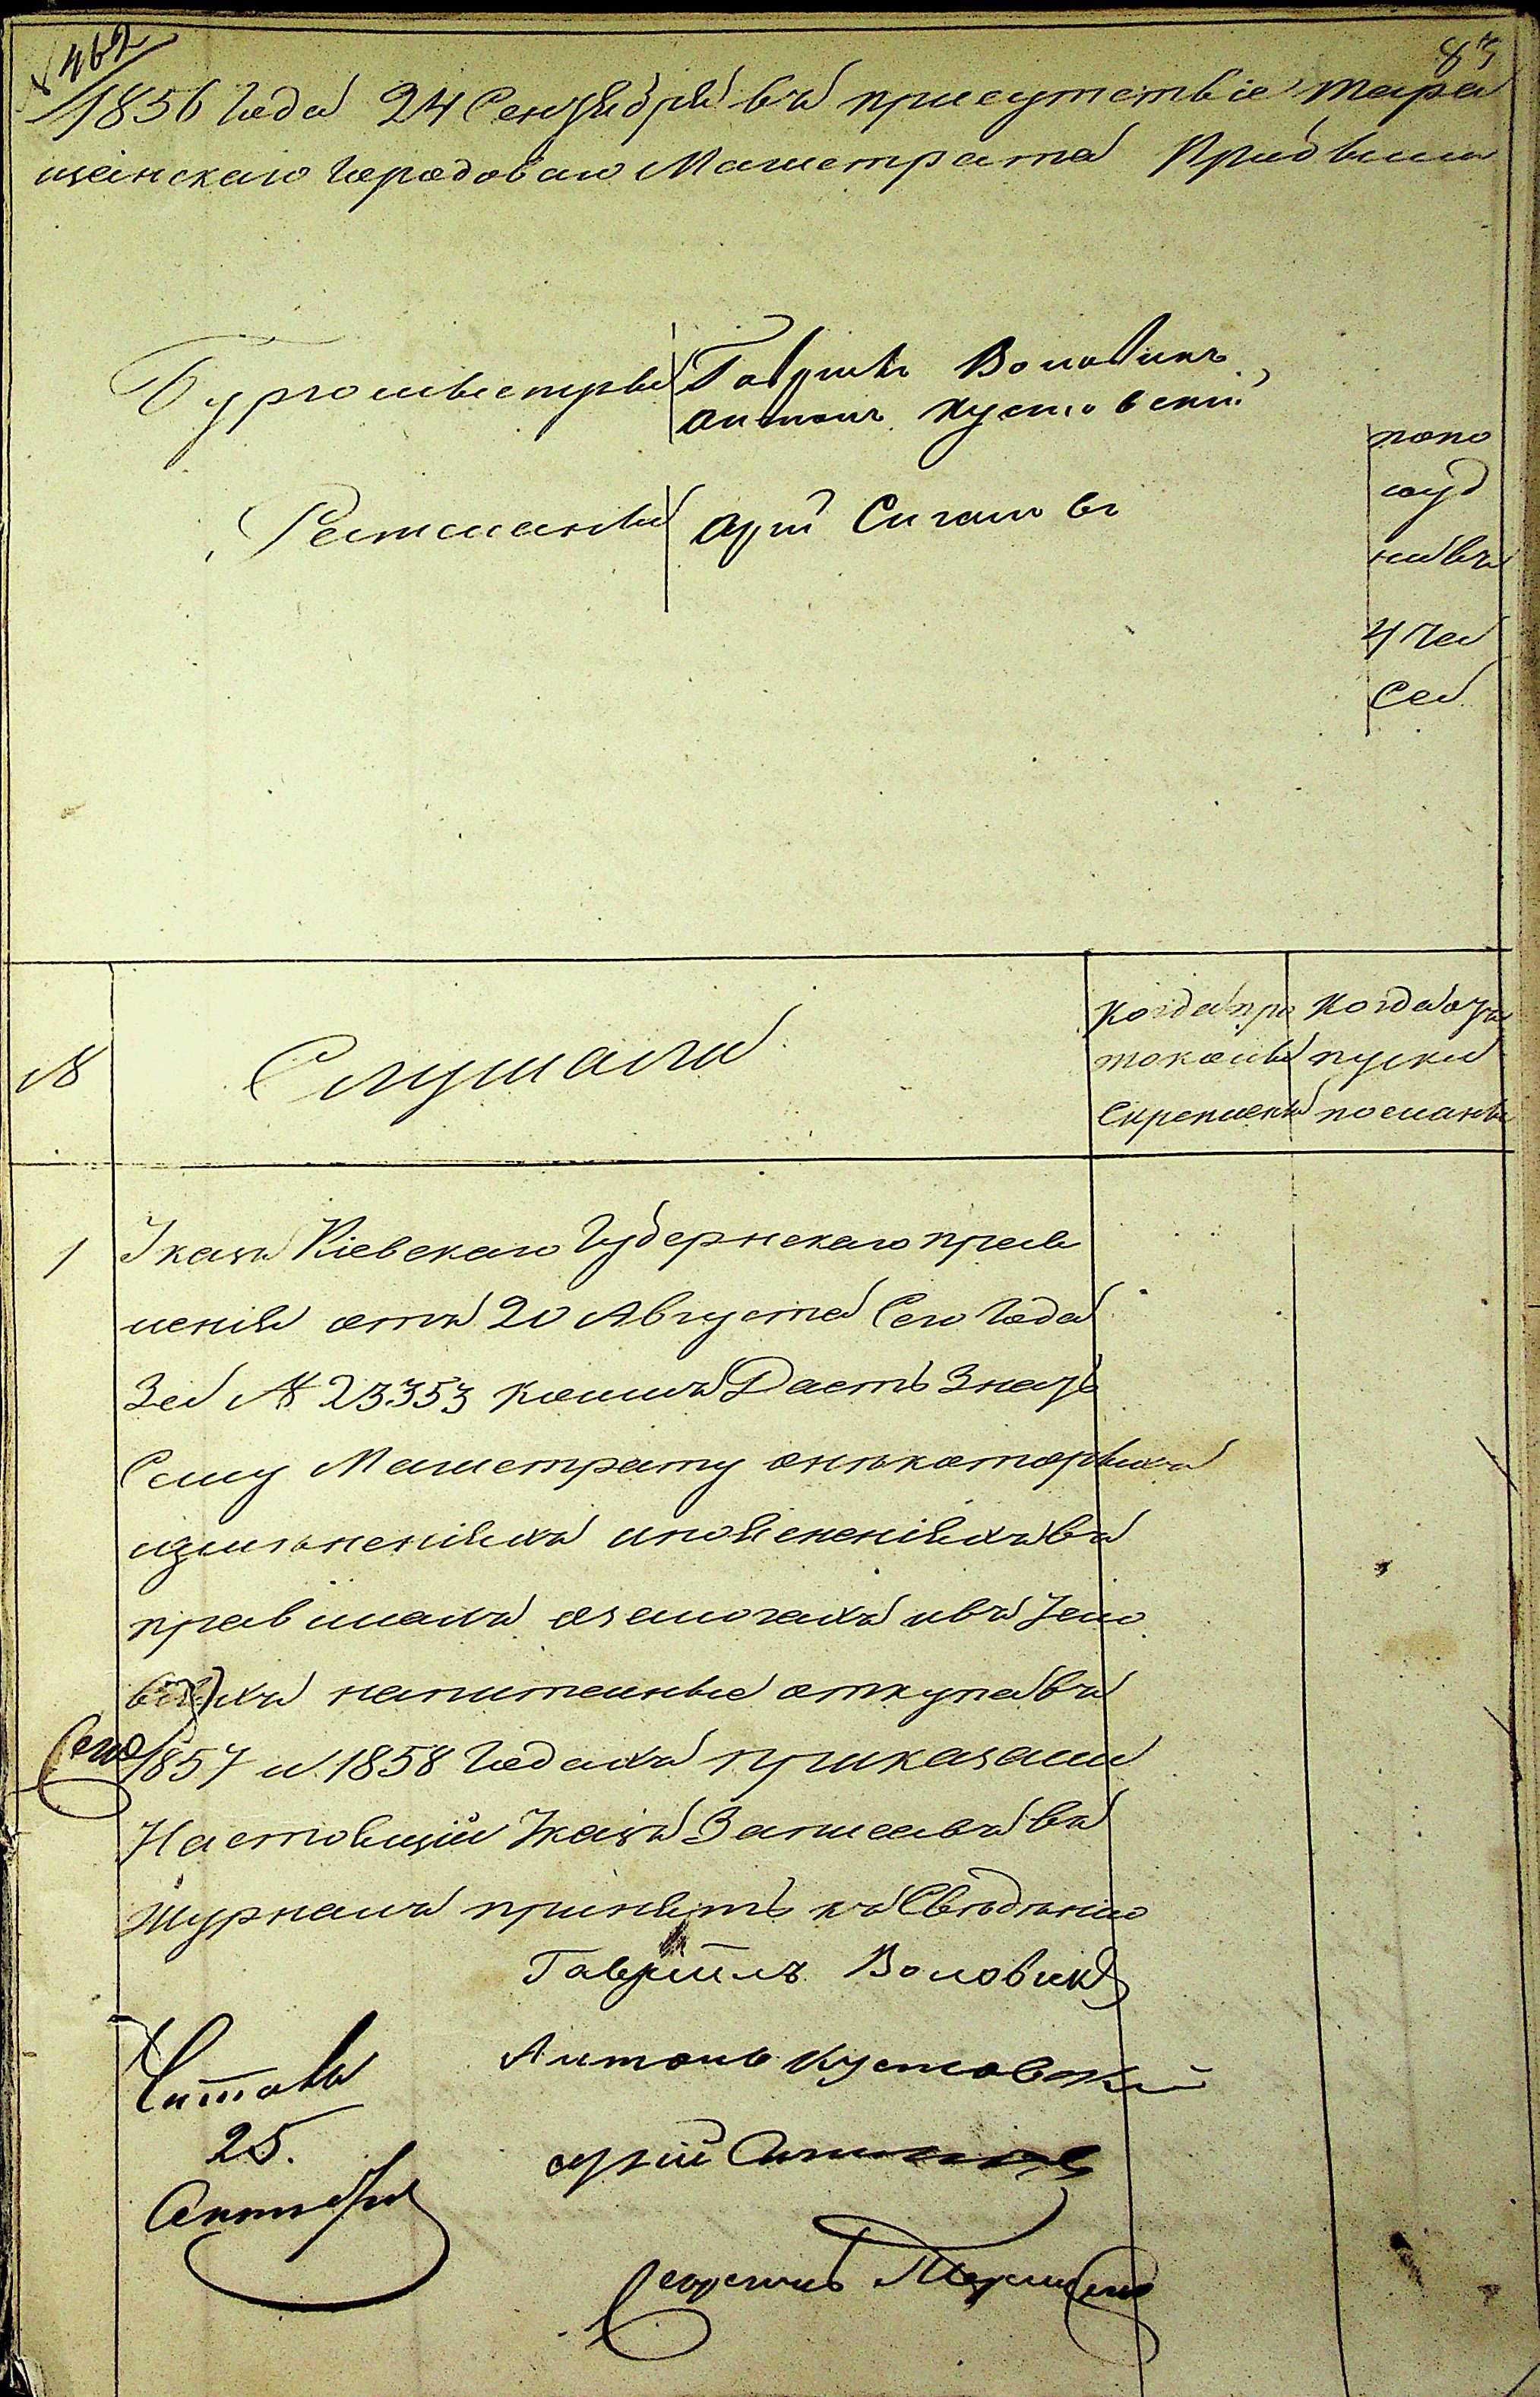 462
87
1856 года 24 Сентября въ присутствіе Тара
щанскаго городоваго Магистрата Прибыли
Бургомистры Гаврилъ Воловикъ
Антонъ Кустовскій
попо
луд
нивъ
4 ча
са
Ратманы Арій Сигаловъ
№
Слушали
Когда про
токолы
скреплены
Когда отъ
пуски
посланы
1
Указъ Кіевскаго Губернскаго прав
ленія отъ 20 Августа сего года
За № 23353 коимъ Даетъ Знать
Сему Магистрату онѣкоторыхъ
измѣненіяхъ ипоясненіяхъ въ
правилахъ озалогахъ ивъ Усло
віяхъ напитейные откупа въ
1857 и 1858 годахъ приказали
Настоящій Указъ Записавъ въ
Журналъ принять къ Свѣдѣнію
Гавриилъ Воловикъ
Антонъ Кустовскій
Арій
Читалъ
25.
Октября